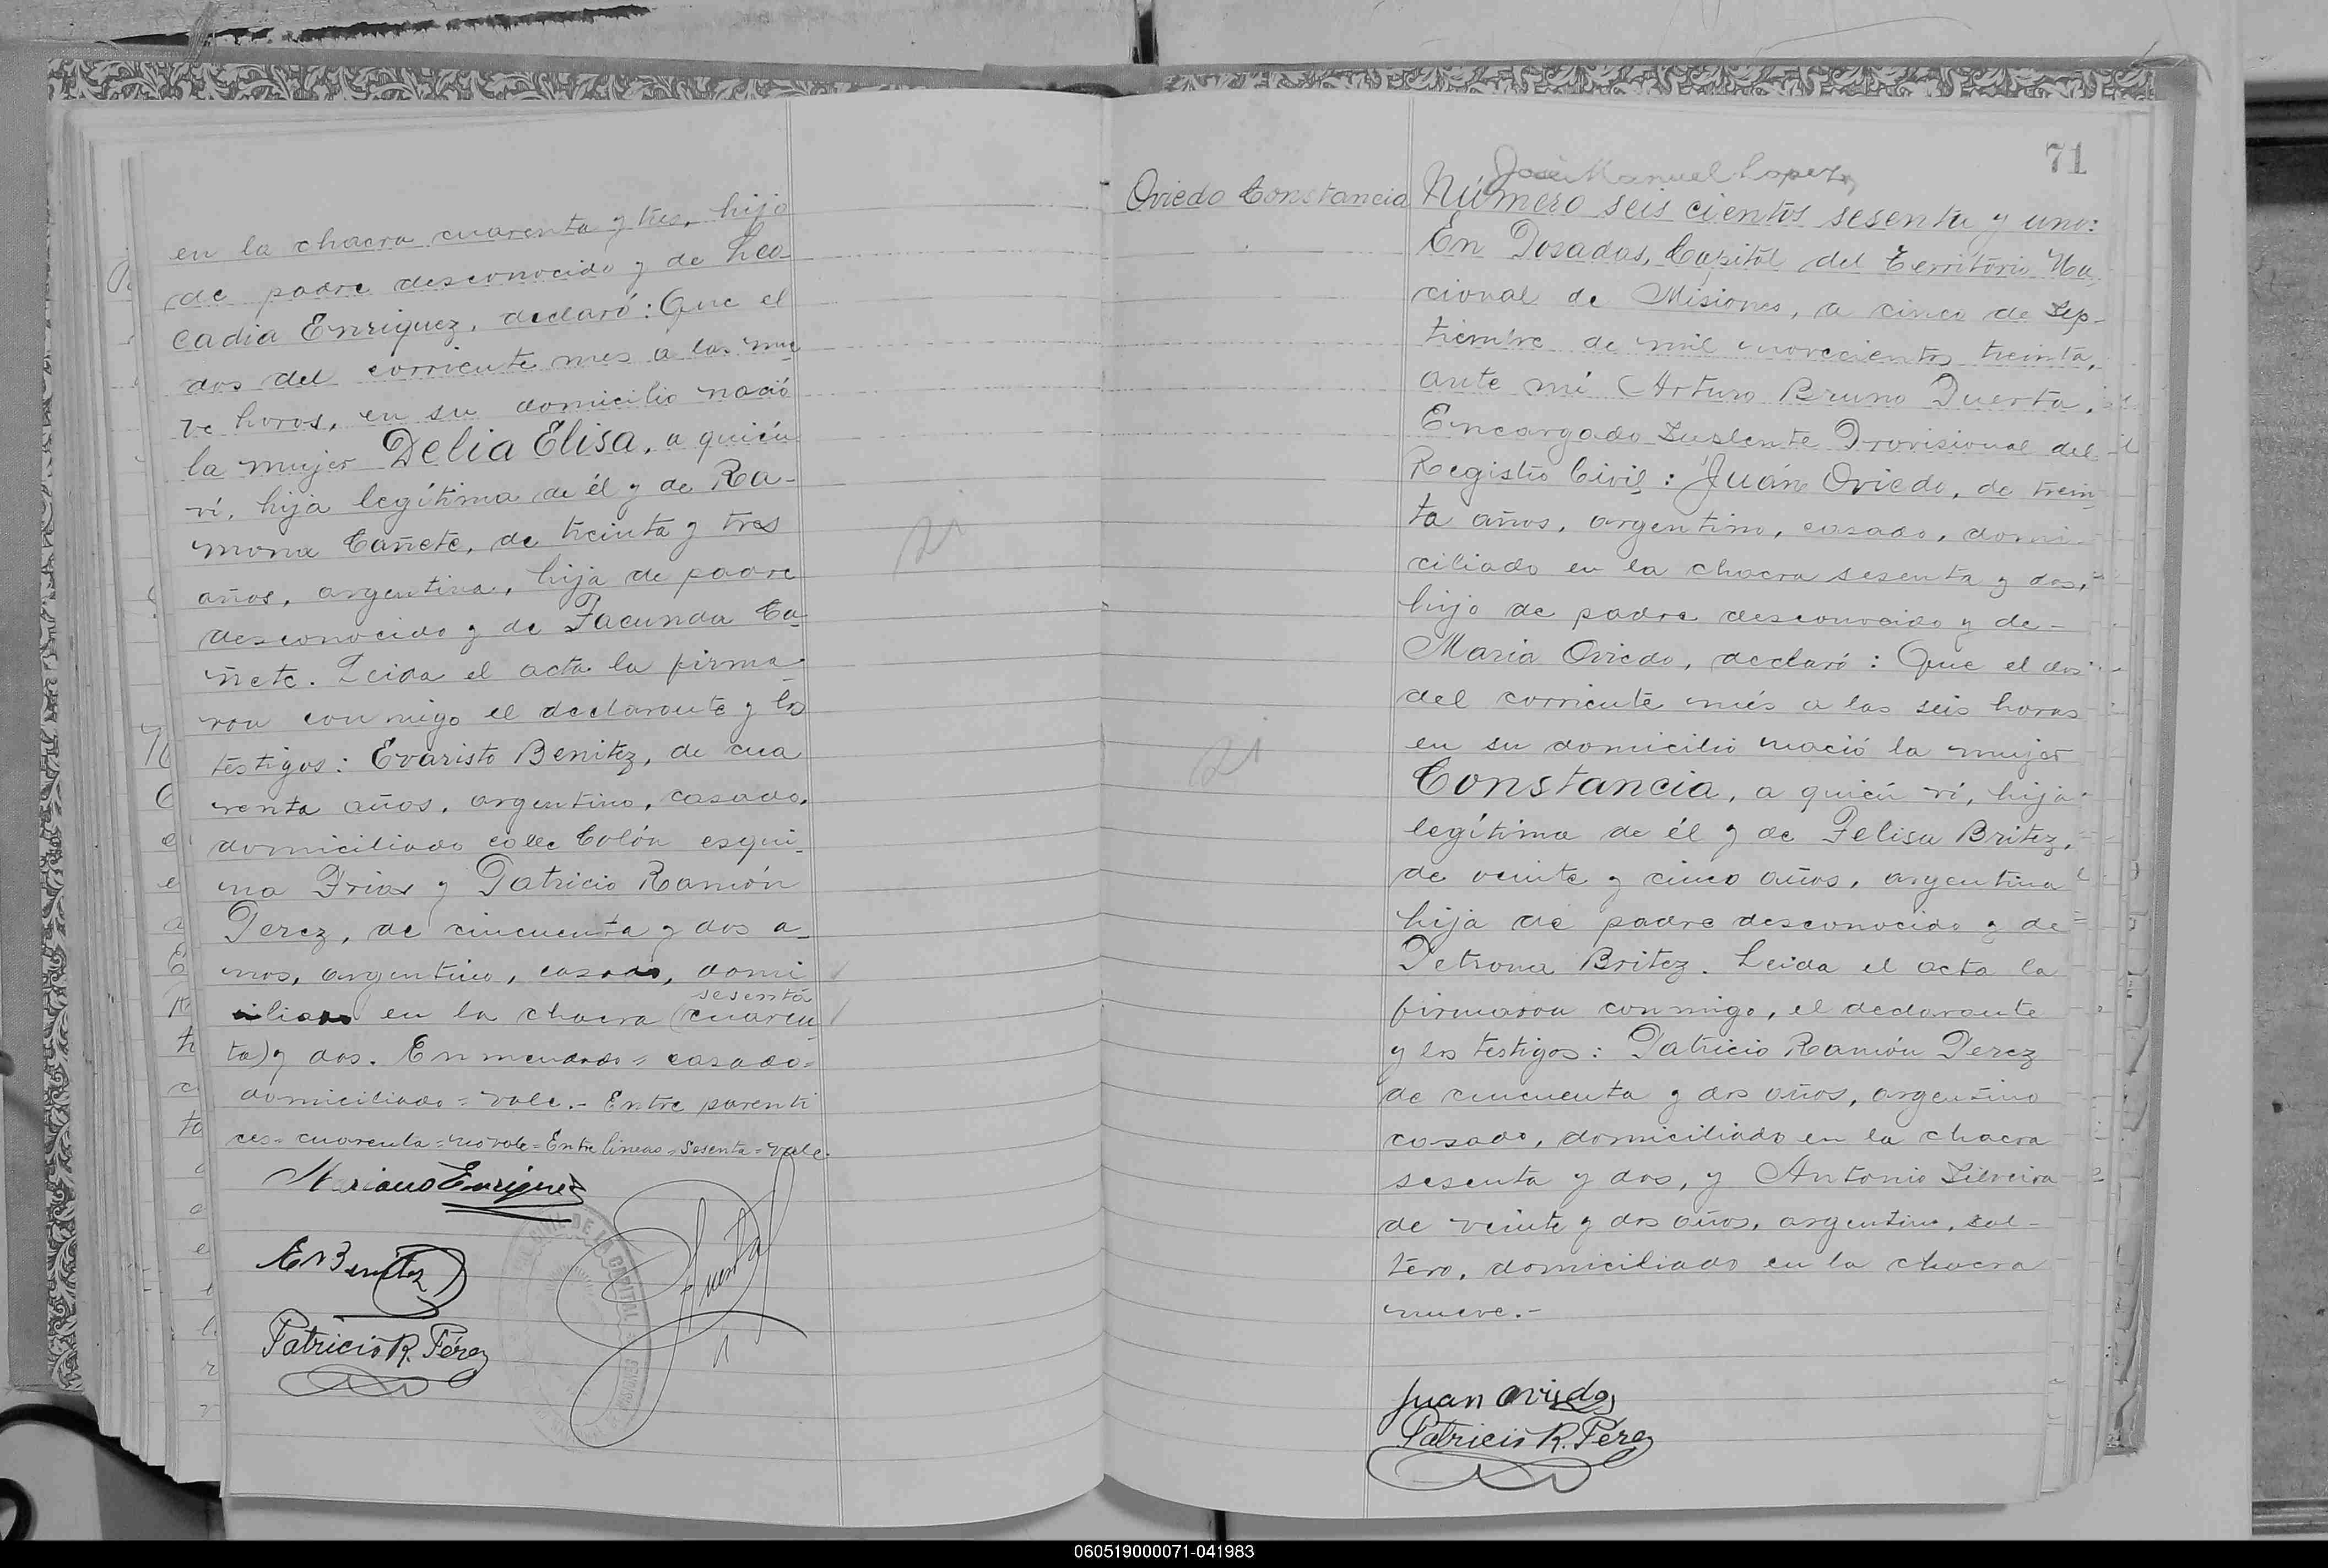 en la chacra cuarenta y tres, hijo
de padre desconocido y de Leo
cadia Enriquez, declaró: Que el
dos del corriente mes a las nue
ve horas, en su domicilio nació
la mujer Delia Elisa, a quién
ví, hija legítima de él y de Ra-
mona Cañete, de treinta y tres
años, argentina, hija de padre
desconocido y de Facunda Ca-
ñete. Leida el acta la firma-
ron conmigo el declarante y los
testigos: Evaristo Benitez, de cua
renta años, argentino, casado,
domiciliado calle Colón esqui-
na Frias y Patricio Ramón
Perez, de cincuenta y dos a-
ños, argentino, casado, domi
sesenta
ciliado en la chacra (cuaren-
ta) y dos. Enmendado = casado =
domiciliado = vale.- Entre parenti
ces = cuarenta = no vale = Entre lineas = sesenta = vale.
Mariano Enriquez
E Benitez
Patricio R. Pérez
CIVIL DE LA CAPITAL
MISIONES
71
José Manuel Lopez
Oviedo Constancia
Número seis cientos sesenta y uno:
En Posadas, Capital del Territorio Na-
cional de Misiones, a cinco de Sep-
tiembre de mil novecientos treinta,
ante mí Arturo Bruno Duerta,
Encargado Suplente Provisional del
Registro Civil: Juan Oviedo, de trein
ta años, argentino, casado, domi-
ciliado en la chacra sesenta y dos,
hijo de padre desconocido y de-
Maria Oviedo, declaró: Que el dos
del corriente més a las seis horas
en su domicilio nació la mujer
Constancia, a quién ví, hija
legítima de él y de Felisa Britez,
de veinte y cinco años, argentina
hija de padre desconocido y de
Petrona Britez. Leida el acta la
firmaron conmigo, el declarante
y los testigos: Patricio Ramón Perez
de cincuenta y dos años, argentino
casado, domiciliado en la chacra
sesenta y dos, y Antonio Silveira
de veinte y dos años, argentino, sol-
tero, domiciliado en la chacra
nueve.-
Juan Oviedo
Patricio R. Pérez
060519000071-041983